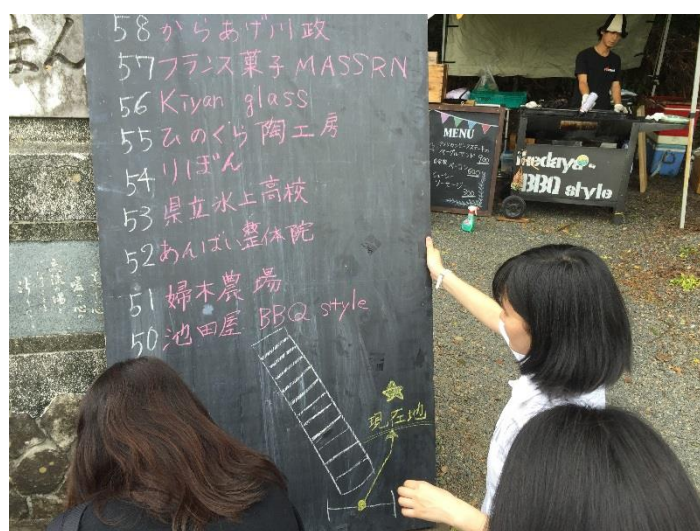 まん
58 からあげ川政
57 フランス菓子 MASSRN
56 Kiyan glass
55 ひのぐら陶工房
54 りぼん
53 県立氷上高校
52 あんばい整体院
51 婦木農場
50 池田屋 BBQ style
現在地
MENU
900
ベーコン
ソーセージ
300
Ikedaya-
BBQ style